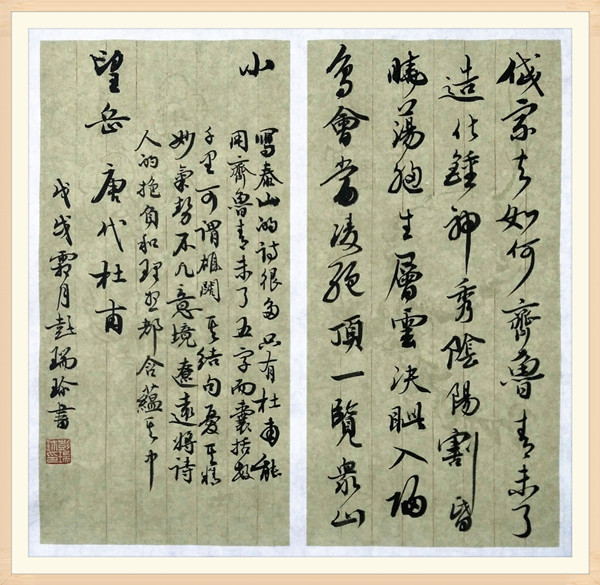 岱宗夫如何齊魯青未了
造化鍾神秀陰陽割昏
曉蕩胸生層雲決眦入歸
鳥會當凌絕頂一覽衆山
小
寫泰山的詩很多只有杜甫能
用齊魯青未了五字而囊括數
千里可謂雄闊其結句憂其精
妙氣勢不凡意境遼遠將詩
人的抱負和理想都含蘊其中
望岳 唐代杜甫
戊戌霜月彭瑞玲書